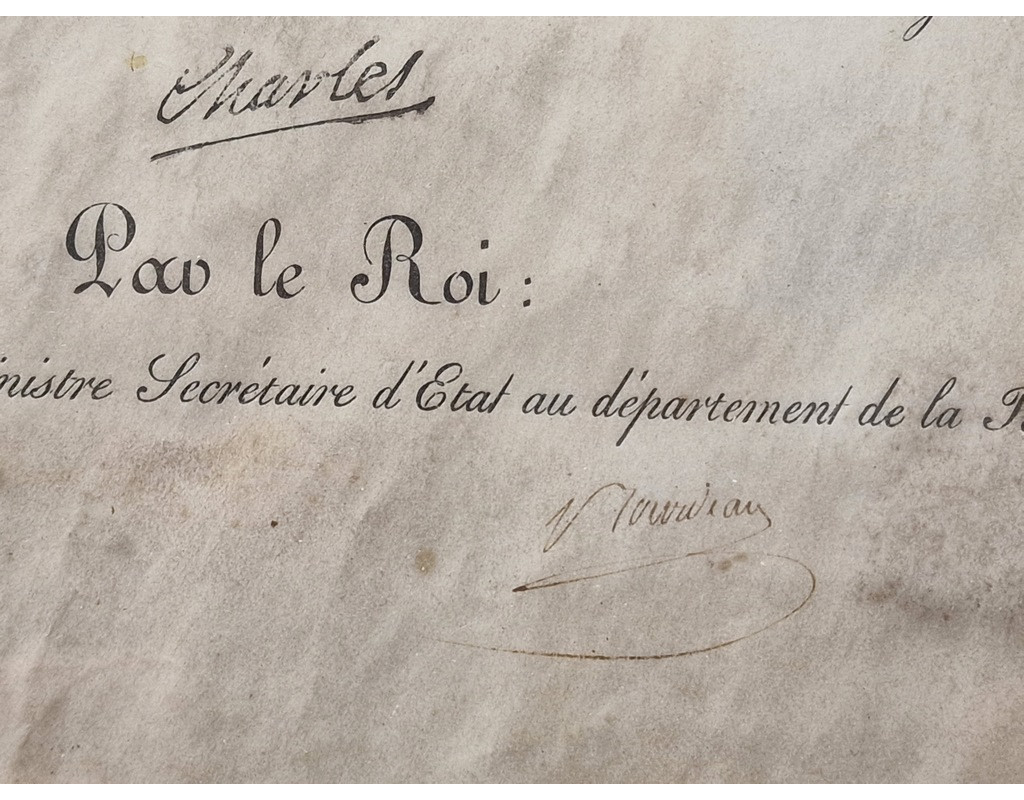 Charles
Par le Roi :
nistre Secrétaire d'Etat au département de la